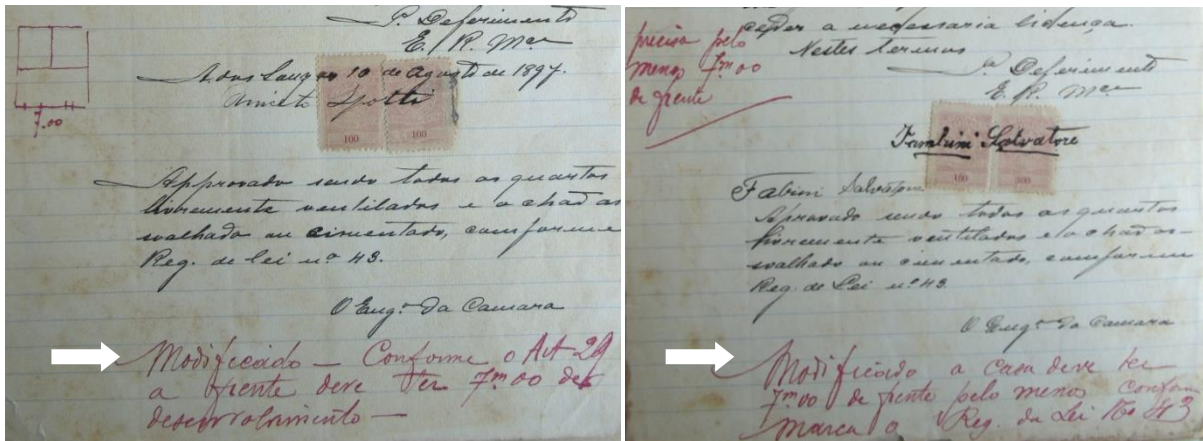 P. Deferimento
E. R. Mce
7.00
São Lourenço 10 de Agosto de 1897.
Aniceto Spotti
100
100
Approvado sendo todos os quartos
livremente ventilados e o chão as
soalhado ou cimentado, conforme
Reg. de lei nº 43.
O Engº da Camara
Modificado — Conforme o Art 29
a frente deve ter 7m00 de
desenvolvimento —
ceder a necessaria licença.
Nestes termos
P. Deferimento
E. R. Mce
precisa pelo
menos 7m00
de frente
Tambini Salvatore
100
100
Fabini Salvatore
Aprovado sendo todos os quartos
livremente ventilados e o chão as-
soalhado ou cimentado, conforme
Reg. de Lei nº 43.
O Engº da Camara
Modificado a casa deve ter
7m00 de frente pelo menos conforme
marca o Reg. da Lei No 43